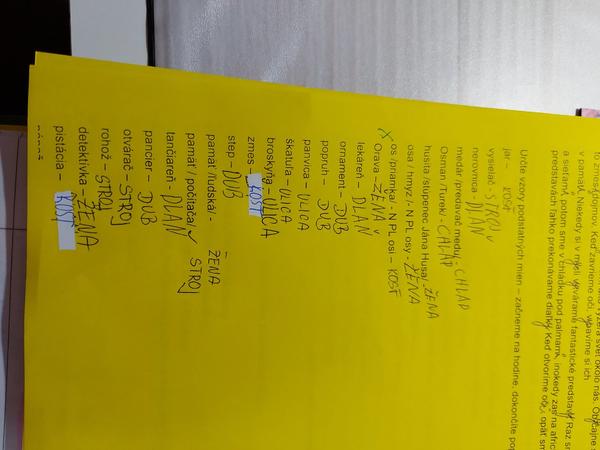 to zmesi dojmov. Keď zavrieme oči, vybavíme si ich
v pamäti. Niekedy si v mysli vytvárame fantastické predstavy. Raz sme
a sieťami, potom sme v chládku pod palmami, inokedy zas na afric
predstavách ľahko prekonávame diaľky. Keď otvoríme oči, opäť sm
Určte vzory podstatných mien – začneme na hodine, dokončite pop
jar – KOSŤ
vysielač - STROJ v
nerovnica - DLAŇ
medár /predavač medu/ - CHLAP
Osman /Turek/ - CHLAP
husita /stúpenec Jána Husa/ - ŽENA
osa / hmyz /- N PL osy - ŽENA
x os /priamka/ - N PL osi – KOSŤ
Orava – ŽENA v
lekáreň - DLAŇ
ornament - DUB
popruh – DUB
panvica – ULICA
škatuľa – ULICA
broskyňa – ULICA
zmes – KOSŤ
step – DUB
pamäť /ľudská/ - ŽENA
pamäť /počítača/ STROJ
tančiareň - DLAŇ
pancier – DUB
otvárač – STROJ
rohož – STROJ
detektívka – ŽENA
pištácia – KOSŤ